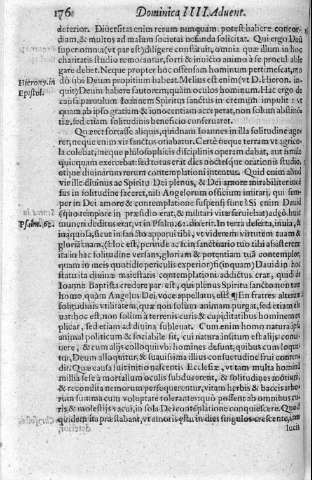 176 Dominica IIII. Aduent.
deterior. Diuersitas enim rerum nunquam potest habere concor-
diam, & multos ad malum societas nefanda solicitat. Qui ergo Deũ
super omnia (vt par est) diligere constituit, omnia quæ illum in hoc
charitatis studio remorantur, forti & inuicto animo à se procul able
gare debet. Neque propter hoc offensam hominum pertimescat, mo
Hierony. in dò sibi Deum propitium habeat. Melius est enim (vt D. Hieron. in-
Epistol. quit) Deum habere fautorem, quàm oculos hominum. Hac ergo de
causa paruulum Ioannem Spiritus sanctus in eremum impulit: vt
quam ab ipso gratiam & innocentiam acceperat, non solùm abstinẽ
tiæ, sed etiam solitudinis beneficio conseruaret.
Quæret fortasse aliquis, quidnam Ioannes in illa solitudine age-
ret, neque enim vir sanctus otiabatur. Certè neque terram vt agrico
la colebat, neque philosophicis disciplinis operam dabat, aut animũ
quicquam exercebat: sed totus erat dies noctesque orationis studio
atque diuinarum rerum contemplationi intentus. Quid enim aliud
virille diuinus ac Spiritu Dei plenus, & Dei amore
tus in solitudine faceret, nisi Angelorum officium imitari, qui sem-
per in Dei amore & contemplatione suspensi sunt? Si enim Dauid
(quo tempore in præsidio erat, & militari vitæ seruiebat) adeò huic
Psalm. 62. muneri deditus erat, vt in Psalm. 62. diceret. In terra deserta, inuia, &
inaquosa, sic vt in sancto apparui tibi, vt viderem virtutem tuam &
gloriã tuam. (Hoc est, perinde ac si in sanctuario tuo tibi abasisterẽ
ita in hac solitudine versans, gloriam & potentiam tuã contemplor,
quam in meis quotidie periculis experior) si inquam Dauid in hoc
statu ita diuinæ maiestatis contemplationi addictus erat, quid de
Ioanne Baptista credere par est, qui plenus Spiritu sancto non tam
homo quàm Angelus Dei voce appellatus est? ¶ En fratres alteram
solitudinis vtilitatem, quæ non solùm animam purgat, sed etiam ele
uat: hoc est, non solùm à terrenis curis & cupiditatibus hominem ex
plicat, sed etiam ad diuina subleuat. Cum enim homo natura ipsa
animal politicum & sociabile sit, cui natura insitum est alijs conui-
uere, & cum alijs colloqui: vbi homines desunt, quibus cum loqua-
tur, Deum alloquitur, & suauissima illius consuetudine frui conten-
dit. Quæ causa fuit initio nascentis Ecclesiæ, vt tam multa homin
millia se se à mortalium oculis subducerent, & solitudines
& recondita nemorum persequerentur, vitam herbis & baccis arbo-
rum summa cum voluptate tolerantes: quò possent ab omnibus cu-
ris & molestijs vacui, in sola Dei contẽplatione conquiescere. Quod
quidem ita præstabant, vt amoris æstu in dies singulos crescente, iam
lucis